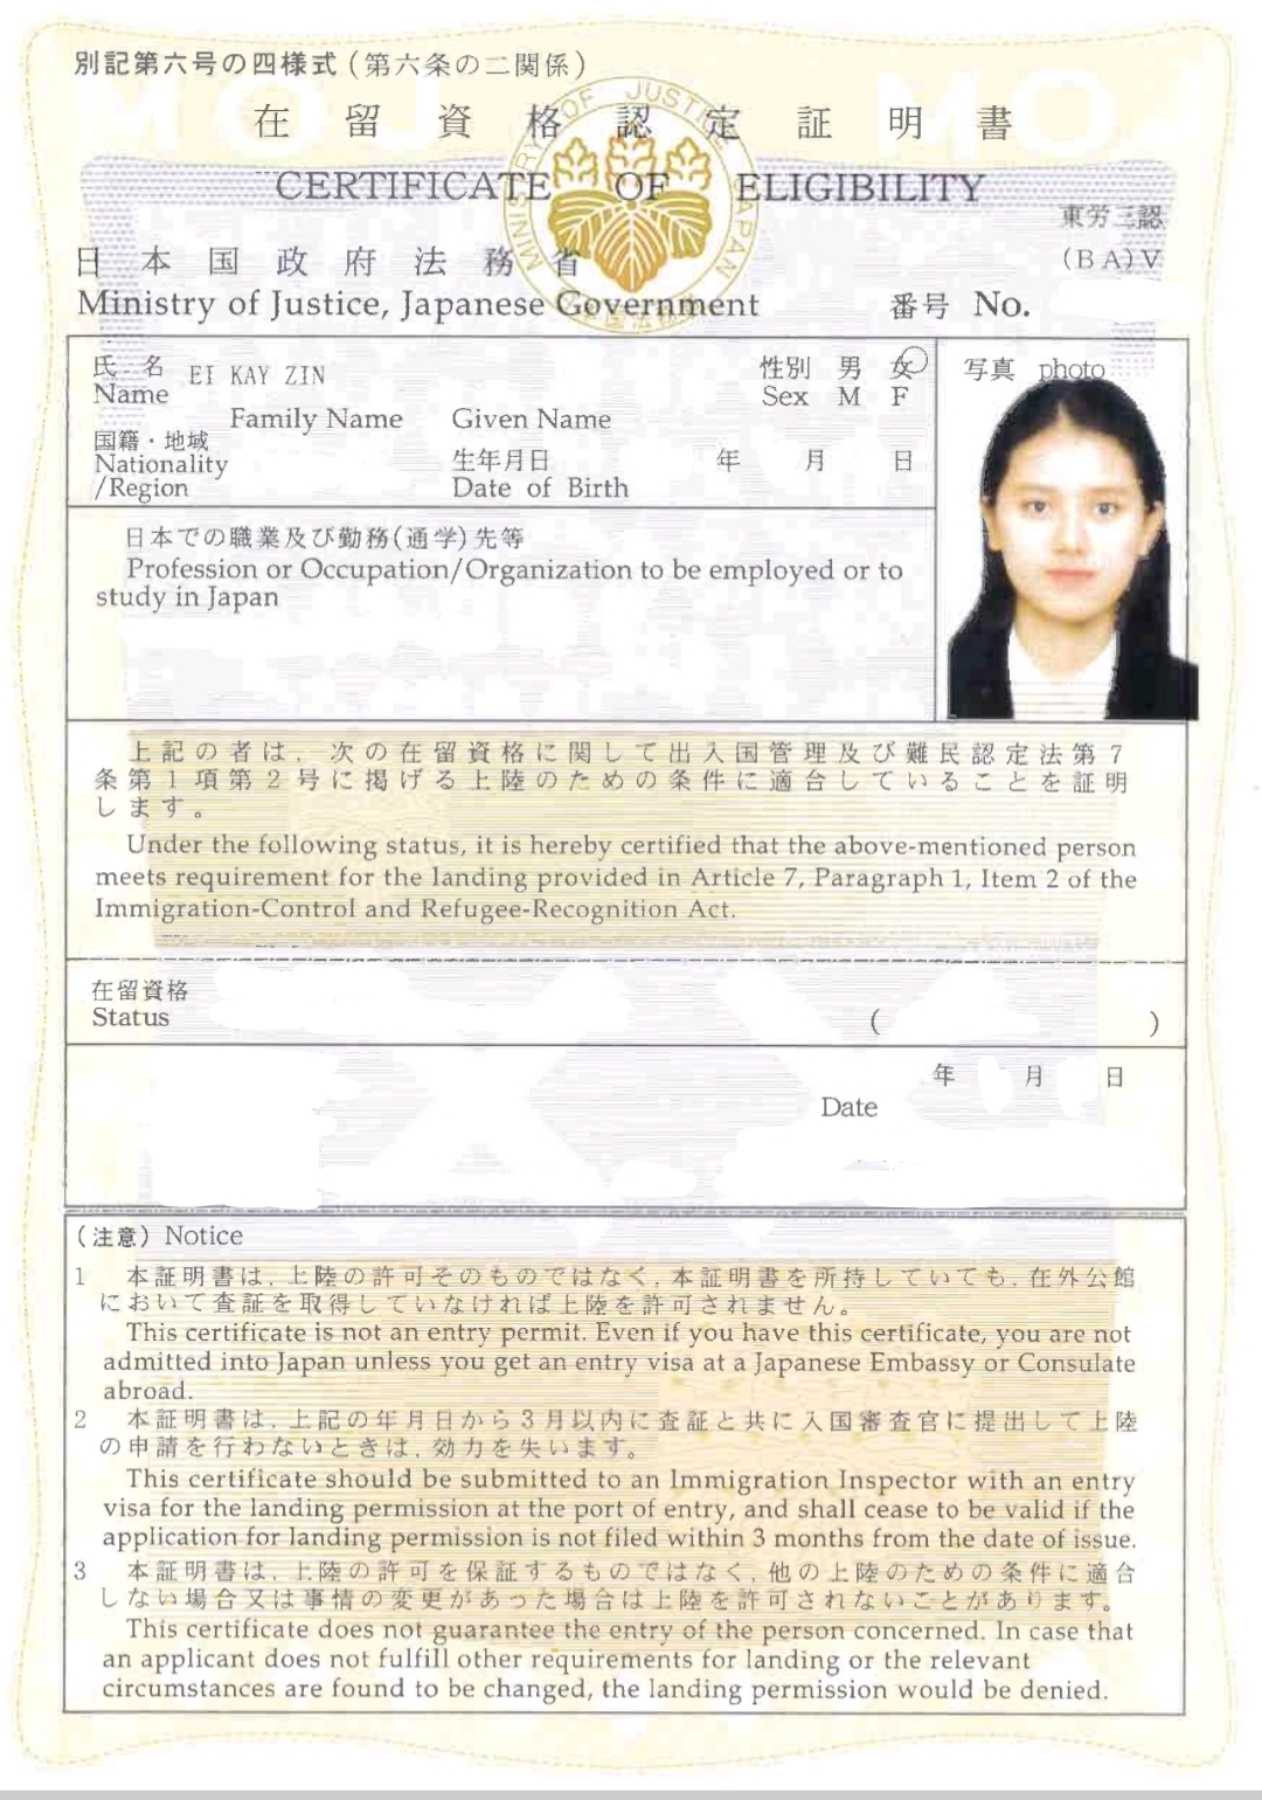 別記第六号の四様式(第六条の二関係)
在留資格認定証明書
CERTIFICATE OF ELIGIBILITY
MINISTRY OF JUSTICE JAPAN
東労三認
日本国政府法務省
(BA)V
Ministry of Justice, Japanese Government
番号 No.
氏名 EI KAY ZIN 性別 男 女 写真 photo
Name Sex M F
Family Name Given Name
国籍・地域
Nationality 生年月日 年 月 日
/Region Date of Birth
日本での職業及び勤務(通学)先等
Profession or Occupation/Organization to be employed or to
study in Japan
上記の者は、次の在留資格に関して出入国管理及び難民認定法第7
条第1項第2号に掲げる上陸のための条件に適合していることを証明
します。
Under the following status, it is hereby certified that the above-mentioned person
meets requirement for the landing provided in Article 7, Paragraph 1, Item 2 of the
Immigration-Control and Refugee-Recognition Act.
在留資格
Status ( )
年 月 日
Date
(注意) Notice
1 本証明書は、上陸の許可そのものではなく、本証明書を所持していても、在外公館
において査証を取得していなければ上陸を許可されません。
This certificate is not an entry permit. Even if you have this certificate, you are not
admitted into Japan unless you get an entry visa at a Japanese Embassy or Consulate
abroad.
2 本証明書は、上記の年月日から3月以内に査証と共に入国審査官に提出して上陸
の申請を行わないときは、効力を失います。
This certificate should be submitted to an Immigration Inspector with an entry
visa for the landing permission at the port of entry, and shall cease to be valid if the
application for landing permission is not filed within 3 months from the date of issue.
3 本証明書は、上陸の許可を保証するものではなく、他の上陸のための条件に適合
しない場合又は事情の変更があった場合は上陸を許可されないことがあります。
This certificate does not guarantee the entry of the person concerned. In case that
an applicant does not fulfill other requirements for landing or the relevant
circumstances are found to be changed, the landing permission would be denied.